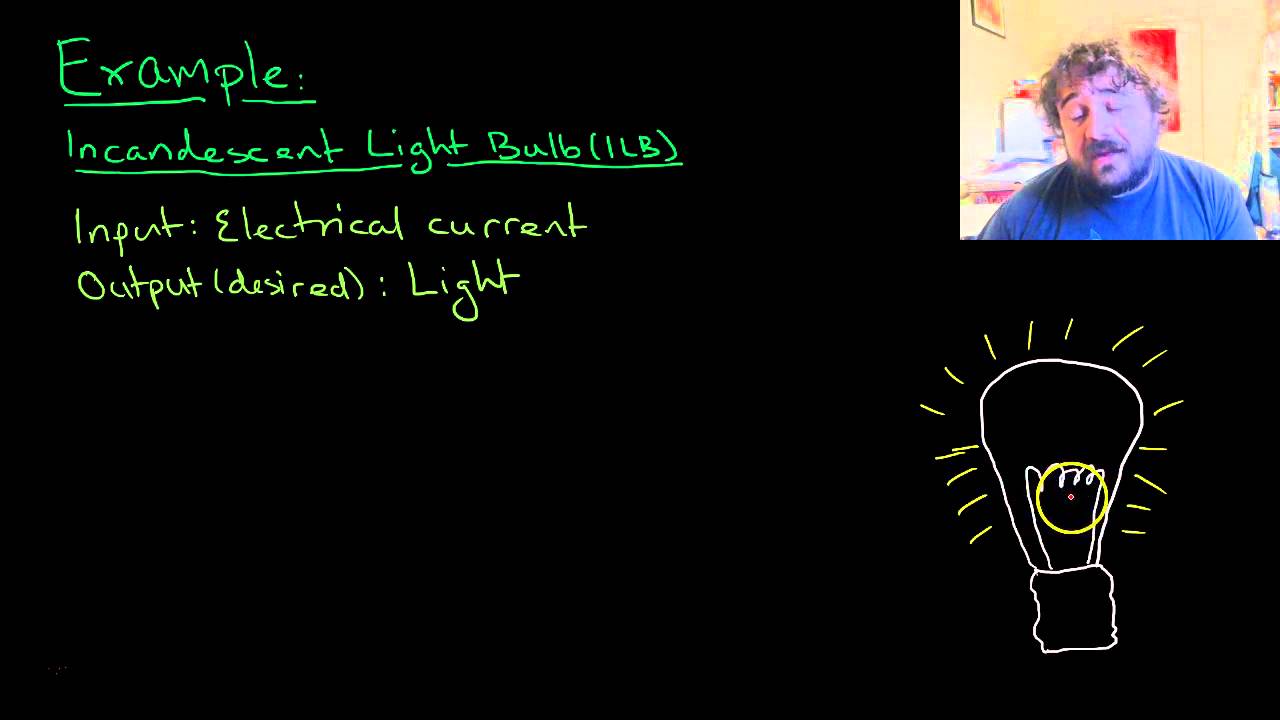 Example:
Incandescent Light Bulb (ILB)
Input: Electrical current
Output (desired): Light